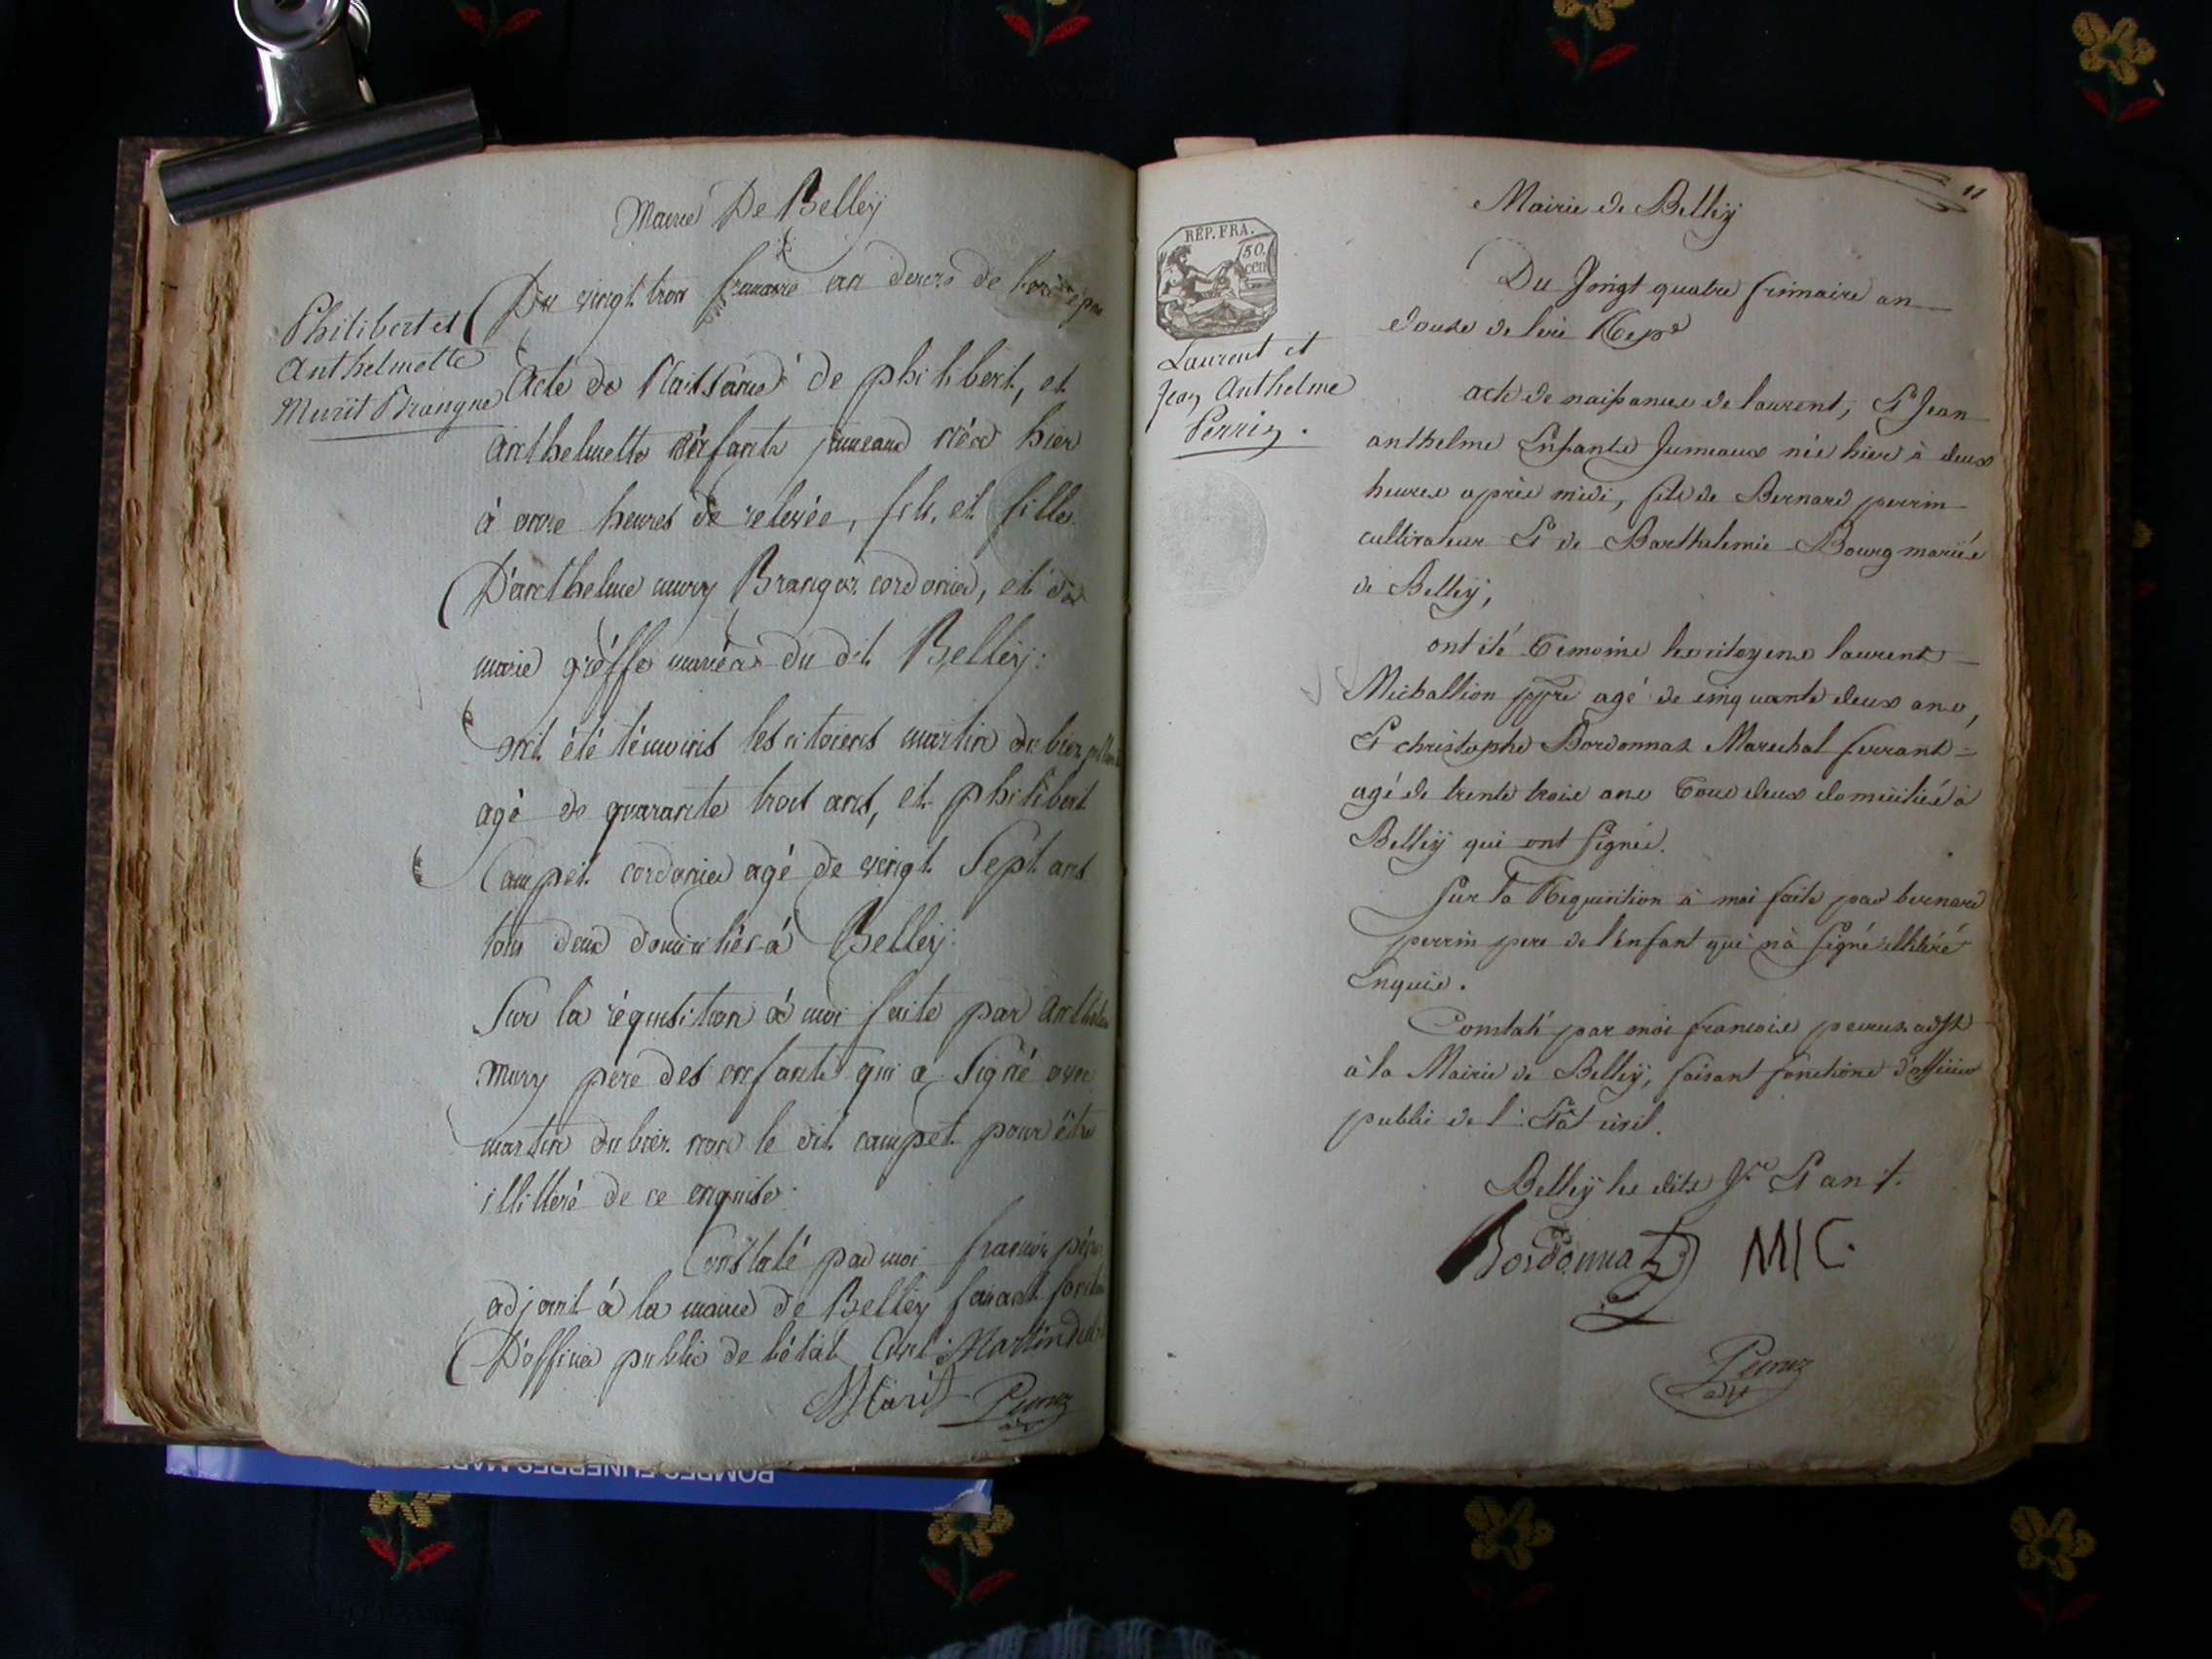 Mairie De Belleÿ
Du vingt trois frimaire an douze de l'ere repu
Philibert et
Anthelmette
Murit Brangne
Acte de Naissance de philibert, et
Anthelmette enfants jumeaux nés hier
à onze heures de relevée, fils, et fille
D'anthelme mury Brangor cordonier, et de
marie greffe mariés du dit Belleÿ.
ont été témoins les citoiens martin dubier
agé de quarante trois ans, et philibert
Campet cordonier agé de vingt Sept ans
tous deux domiciliés à Belleÿ.
Sur la réquisition à moi faite par anthelm
mury père des enfants qui a Signé avec
martin dubier non le dit campet pour être
illitteré de ce enquise.
Constaté par moi francois péru
adjoint à la mairie de Belleÿ faisant fonction
D'officier public de l'état Civil. Martin dub
Murit Peruz
11
Mairie de Belleÿ
REP. FRA.
50.
cen
Du Vingt quatre frimaire an
douze de l'ere Repe
Laurent et
Jean Anthelme
Perrin.
acte de naissance de laurent, Et Jean
anthelme Enfants Jumeaux née hier à deux
heures après midi, fils de Bernard perrin
cultivateur Et de Barthelemie Bourg mariés
de Belleÿ,
ont été temoins les citoyens laurent
Michallion ppre agé de cinquante deux ans,
Et christophe Bordonnat Marechal ferrant
agé de trente trois ans tous deux domiciliés à
Belleÿ qui ont signés.
Sur la Requisition à moi faite par bernard
perrin pere de l'enfant qui n'a signé illitéré
Enquis.
Constaté par moi francois peruz adjt
à la Mairie de Belleÿ, faisant fonctions d'officier
public de l'Etat civil.
Belleÿ les dits Jr Et an.
Bordonnat MIC.
Peruz
adjt
POMPES FUNEBRES MAR